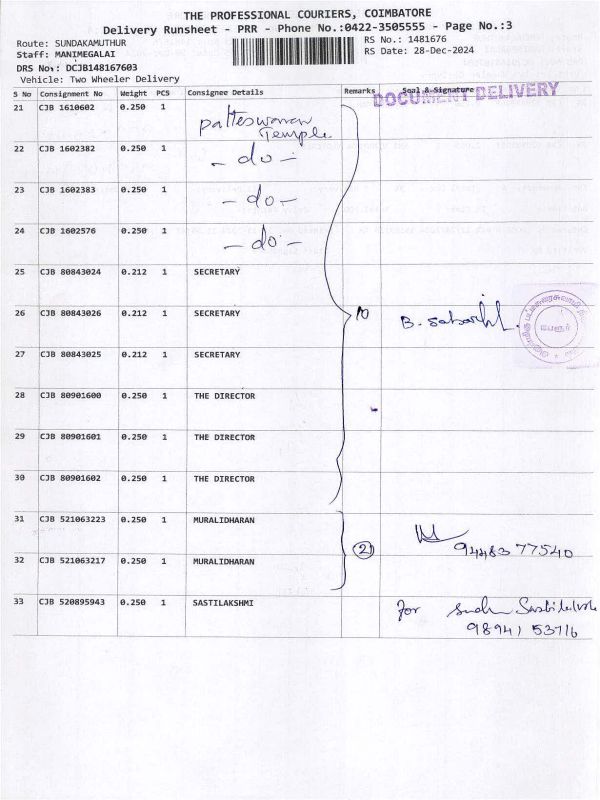 THE PROFESSIONAL COURIERS, COIMBATORE
Delivery Runsheet - PRR - Phone No.:0422-3505555 - Page No.:3
Route: SUNDAKAMUTHUR RS No.: 1481676
Staff: MANIMEGALAI RS Date: 28-Dec-2024
DRS No.: DCJB148167603
Vehicle: Two Wheeler Delivery
S No Consignment No Weight PCS Consignee Details Remarks Seal & Signature
DOCUMENT DELIVERY
21 CJB 1610602 0.250 1 Patteswaran
Temple
22 CJB 1602382 0.250 1 - do -
23 CJB 1602383 0.250 1 - do -
24 CJB 1602576 0.250 1 - do -
25 CJB 80843024 0.212 1 SECRETARY
26 CJB 80843026 0.212 1 SECRETARY 10 B. Sabari பேரூர்
27 CJB 80843025 0.212 1 SECRETARY
28 CJB 80901600 0.250 1 THE DIRECTOR
29 CJB 80901601 0.250 1 THE DIRECTOR
30 CJB 80901602 0.250 1 THE DIRECTOR
31 CJB 521063223 0.250 1 MURALIDHARAN
2 9448377540
32 CJB 521063217 0.250 1 MURALIDHARAN
33 CJB 520895943 0.250 1 SASTILAKSHMI For
98941 53716